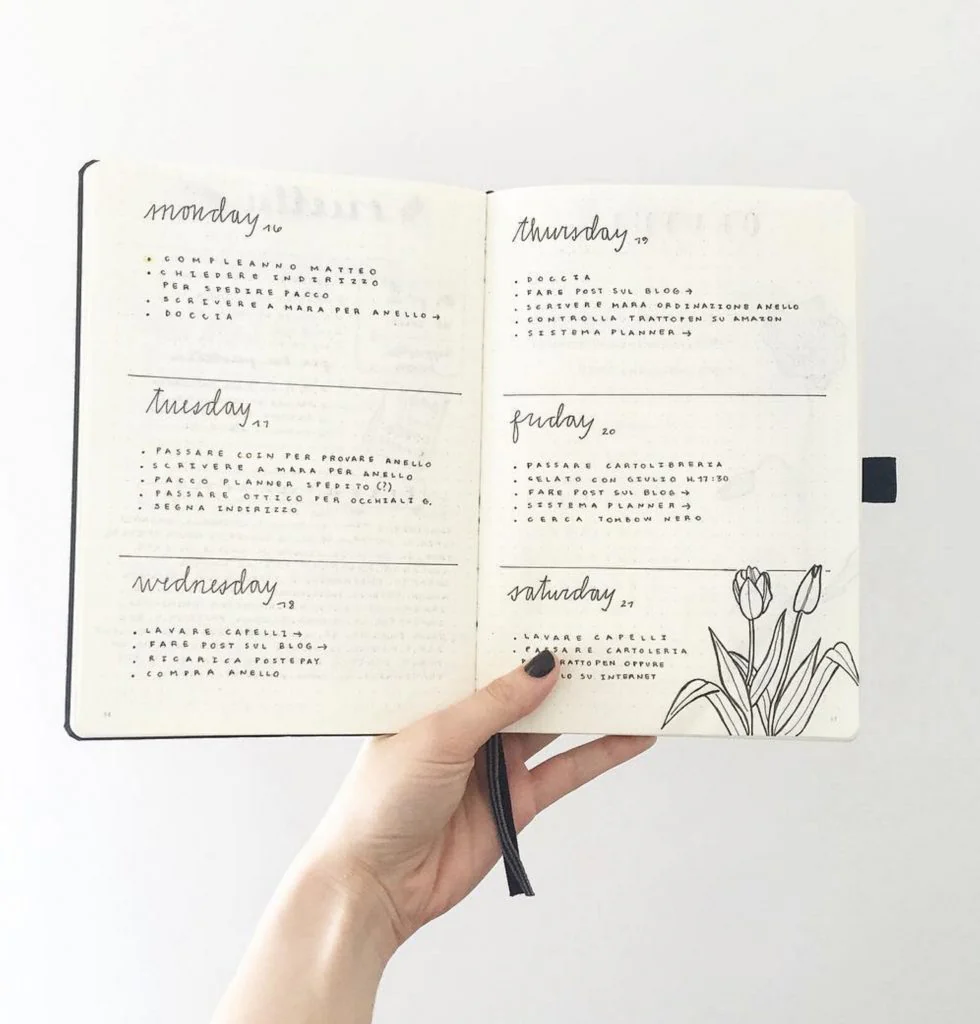 monday 16
• COMPLEANNO MATTEO
• CHIEDERE INDIRIZZO
PER SPEDIRE PACCO
• SCRIVERE A MARA PER ANELLO →
• DOCCIA
tuesday 17
• PASSARE COIN PER PROVARE ANELLO
• SCRIVERE A MARA PER ANELLO
• PACCO PLANNER SPEDITO (?)
• PASSARE OTTICO PER OCCHIALI G.
• SEGNA INDIRIZZO
wednesday 18
• LAVARE CAPELLI →
• FARE POST SUL BLOG →
• RICARICA POSTEPAY
• COMPRA ANELLO
thursday 19
• DOCCIA
• FARE POST SUL BLOG →
• SCRIVERE MARA ORDINAZIONE ANELLO
• CONTROLLA TRATTOPEN SU AMAZON
• SISTEMA PLANNER →
friday 20
• PASSARE CARTOLIBRERIA
• GELATO CON GIULIO H.17:30
• FARE POST SUL BLOG →
• SISTEMA PLANNER →
• CERCA TOMBOW NERO
saturday 21
• LAVARE CAPELLI
• PASSARE CARTOLERIA
TRATTOPEN OPPURE
SU INTERNET